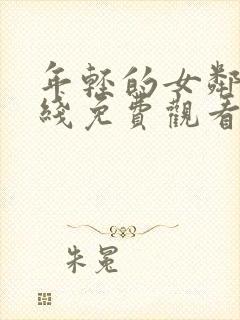 年輕的女鄰
綫免費觀看
朱冕